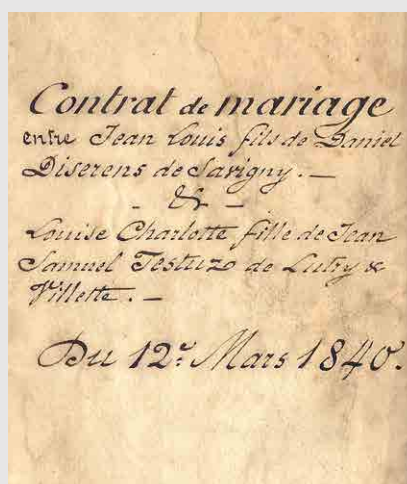 Contrat de mariage
entre Jean Louis fils de Daniel
Diserens de Savigny. —
- & -
Louise Charlotte fille de Jean
Samuel Testuz de Lutry &
Villette. —
Du 12.e Mars 1840.